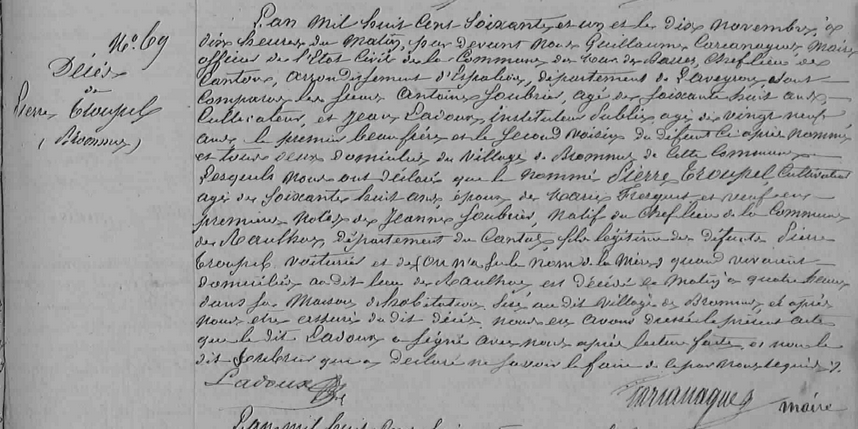 N.o 69
Décès
de
Pierre Troupel
(Bromme)
L'an mil huit cent soixante et un et le dix novembre, à
dix heures du matin, par devant nous Guillaume Carcanague Maire
officier de l'Etat Civil de la Commune de Mur de Barrez, chef lieu de
Canton, arrondissement d'Espalion, département de l'aveyron, sont
Comparus les sieurs Antoine Joubrier, agé de soixante huit ans
Cultivateur, et Jean Ladoux instituteur public agé de vingt neuf
ans le premier beau frère et le second voisin du défunt ci après nommé
et tous deux domiciliés du village de Bromme de Cette Commune
Lesquels nous ont déclaré que le nommé Pierre Troupel, Cultivateur
agé de soixante huit ans époux de Marie et veuf en
premières Notes de Jeanne Joubrier, natif du Chef lieu de la Commune
de Raulhac département du Cantal fils légitime des défunts Pierre
Troupel voiturier et de (on n'a su le nom de la Mère) quand vivaient
domiciliés au dit lieu de Raulhac est décédé ce matin à quatre heures
dans sa Maison d'habitation, sise au dit village de Bromme, et après
nous etre assuré du dit décès, nous en avons dressé le présent acte
que le dit Ladoux a signé avec nous après lecture faite, et non le
dit Joubrier qui a déclaré ne savoir le faire de ce par nous requis
Ladoux
Carcanague maire
L'an mil huit